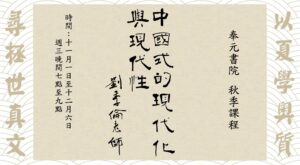 以夏學奧質
奉元書院 秋季課程
中國式的現代化
與現代性
劉季倫老師
時間：十一月一日至十二月六日
週三晚間七點至九點
尋拯世真文